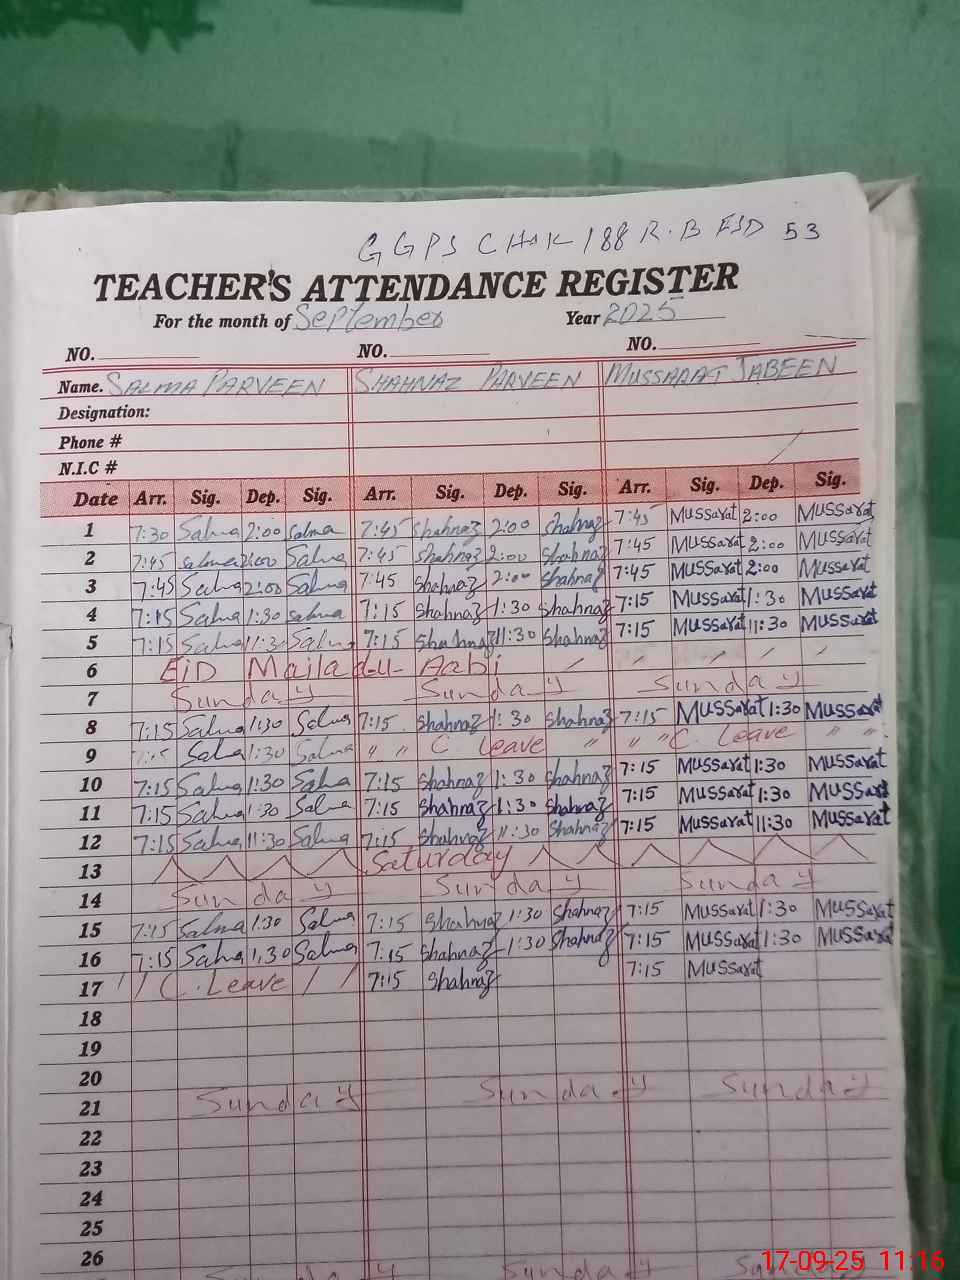 GGPS CHAK 188 R.B FSD 53
TEACHER'S ATTENDANCE REGISTER
For the month of September Year 2025
NO. NO. NO.
Name. SALMA PARVEEN SHAHNAZ PARVEEN MUSSARAT JABEEN
Designation:
Phone #
N.I.C #
Date Arr. Sig. Dep. Sig. Arr. Sig. Dep. Sig. Arr. Sig. Dep. Sig.
1 7:30 Salma 2:00 Salma 7:45 Shahnaz 2:00 Shahnaz 7:45 Mussarat 2:00 Mussarat
2 7:45 Salma 2:00 Salma 7:45 Shahnaz 2:00 Shahnaz 7:45 Mussarat 2:00 Mussarat
3 7:45 Salma 2:00 Salma 7:45 Shahnaz 2:00 Shahnaz 7:45 Mussarat 2:00 Mussarat
4 7:15 Salma 1:30 Salma 7:15 Shahnaz 1:30 Shahnaz 7:15 Mussarat 1:30 Mussarat
5 7:15 Salma 11:30 Salma 7:15 Shahnaz 11:30 Shahnaz 7:15 Mussarat 11:30 Mussarat
6 EID Majlad-u-Aabi
7 Sunday Sunday Sunday
8 7:15 Salma 1:30 Salma 7:15 Shahnaz 1:30 Shahnaz 7:15 Mussarat 1:30 Mussarat
9 7:15 Salma 1:30 Salma " " C. Leave " " " C. Leave " "
10 7:15 Salma 1:30 Salma 7:15 Shahnaz 1:30 Shahnaz 7:15 Mussarat 1:30 Mussarat
11 7:15 Salma 1:30 Salma 7:15 Shahnaz 1:30 Shahnaz 7:15 Mussarat 1:30 Mussarat
12 7:15 Salma 11:30 Salma 7:15 Shahnaz 11:30 Shahnaz 7:15 Mussarat 11:30 Mussarat
13 Saturday
14 Sunday Sunday Sunday
15 7:15 Salma 1:30 Salma 7:15 Shahnaz 1:30 Shahnaz 7:15 Mussarat 1:30 Mussarat
16 7:15 Salma 1:30 Salma 7:15 Shahnaz 1:30 Shahnaz 7:15 Mussarat 1:30 Mussarat
17 C. Leave 7:15 Shahnaz 7:15 Mussarat
18
19
20
21 Sunday Sunday Sunday
22
23
24
25
26
17-09-25 11:16